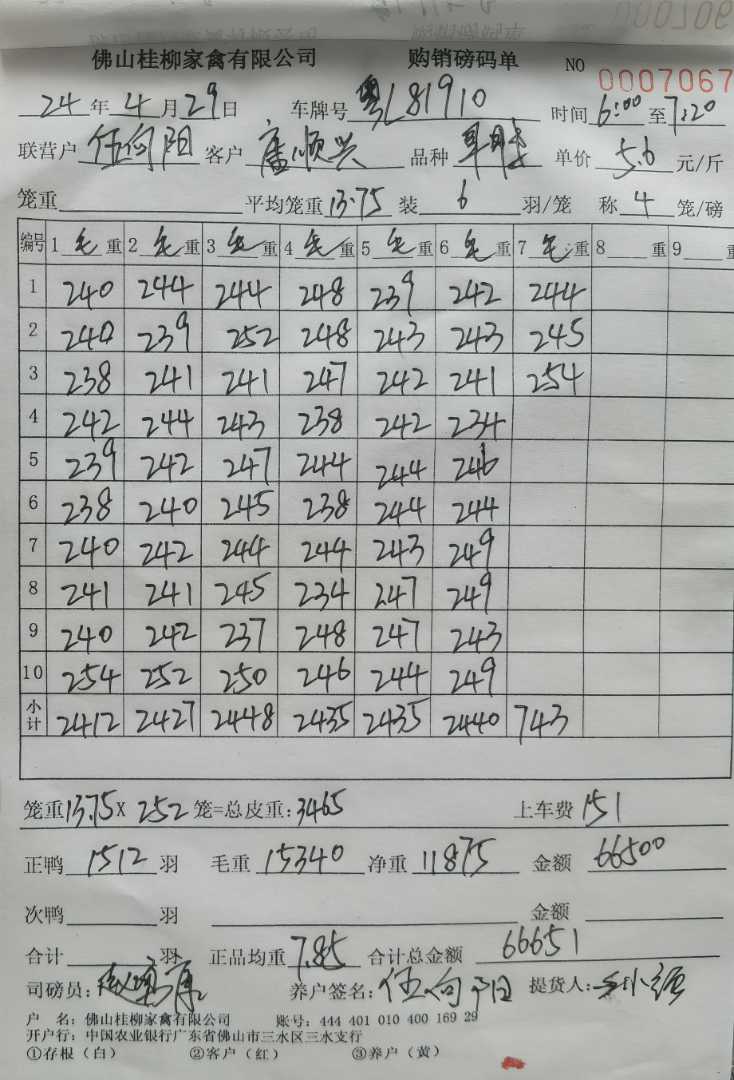 佛山桂柳家禽有限公司 购销磅码单 NO 0007067
24 年 4 月 29 日 车牌号 粤L81910 时间 6:00 至 7:20
联营户 伍向阳 客户 顺兴 品种 单价 5.6 元/斤
笼重 平均笼重 13.75 装 6 羽/笼 称 4 笼/磅
编号 1 毛 重 2 毛 重 3 毛 重 4 毛 重 5 毛 重 6 毛 重 7 毛 重 8 重 9 重
1 240 244 244 248 239 242 244
2 240 239 252 248 243 243 245
3 238 241 241 247 242 241 254
4 242 244 243 238 242 234
5 239 242 247 244 244 246
6 238 240 245 238 244 244
7 240 242 244 244 243 249
8 241 241 245 234 247 249
9 240 242 237 248 247 243
10 254 252 250 246 244 249
小计 2412 2427 2448 2435 2435 2440 743
笼重 13.75 X 252 笼=总皮重: 3465 上车费 151
正鸭 1512 羽 毛重 15340 净重 11875 金额 66500
次鸭 羽 金额
合计 羽 正品均重 7.85 合计总金额 66651
司磅员: 养户签名: 伍向阳 提货人:
户 名: 佛山桂柳家禽有限公司 账号: 444 401 010 400 169 29
开户行: 中国农业银行广东省佛山市三水区三水支行
①存根（白） ②客户（红） ③养户（黄）